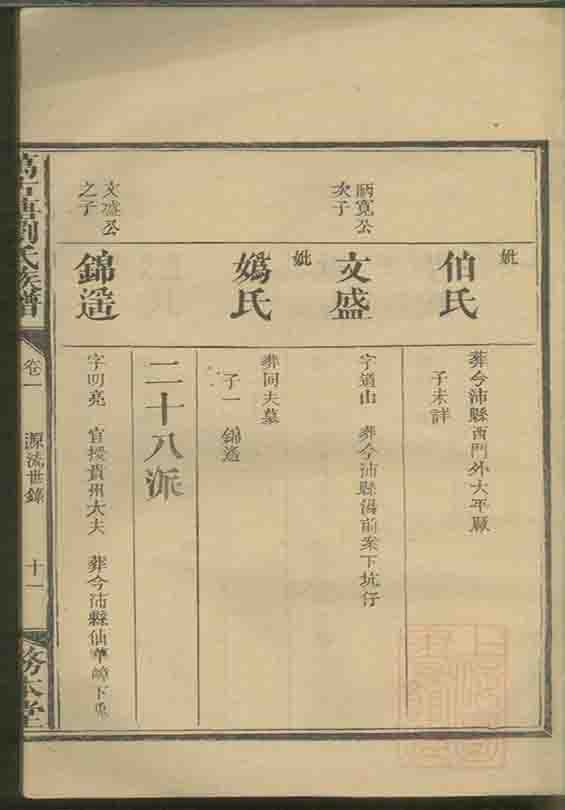 妣
伯氏
葬今沛縣西門外大平原
子未詳
炳寬公
次子
文盛
字道山　葬今沛縣湯前案下坑仔
妣
媯氏
葬同夫墓
子一　錦遥
二十八派
文盛公
之子
錦遥
字明亮　官授貴州大夫　葬今沛縣仙華嶂下
劉氏族譜
卷一
源流世錄
十一
務本堂